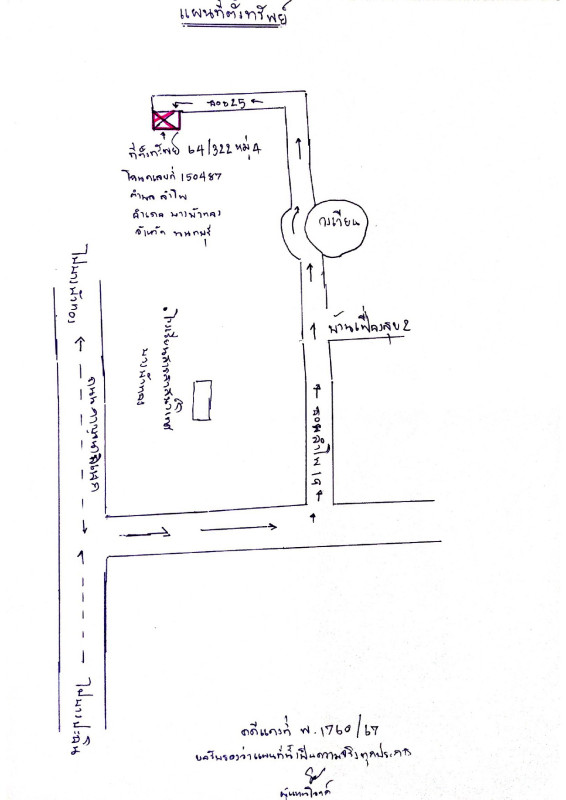 แผนที่ตั้งทรัพย์
ซอย 25
ที่ตั้งทรัพย์ 64/322 หมู่ 4
โฉนดเลขที่ 150487
ตำบล ลำโพ
อำเภอ บางบัวทอง
จังหวัด นนทบุรี
วงเวียน
บ้านเฟื่องสุข 2
ไปบางบัวทอง
ถนนกาญจนาภิเษก
โรงเรียน
บางบัวทอง
ซอยลำโพ
ไปบางปะอิน
คดีแดงที่ พ.1760/67
ขอรับรองว่าแผนที่นี้เป็นความจริงทุกประการ
ผู้แทนโจทก์